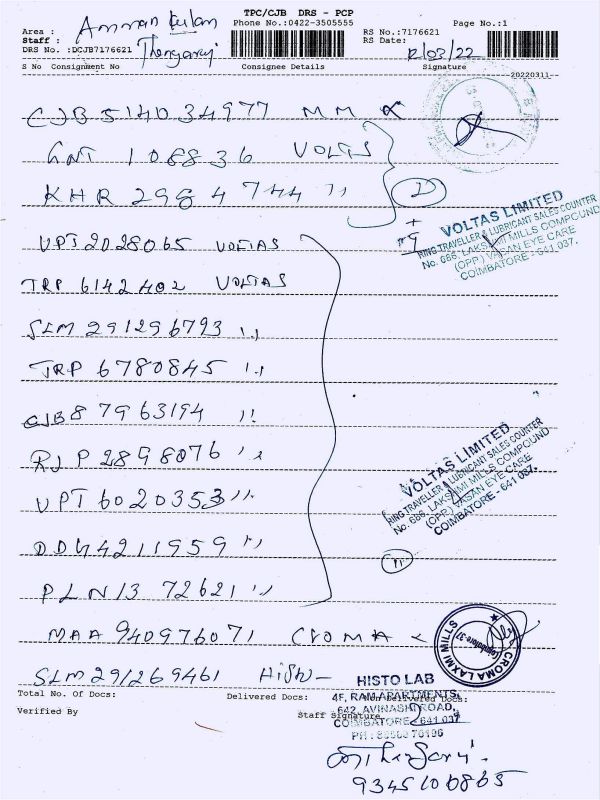 TPC/CJB DRS - PCP
Area : Amman kulam
Phone No.:0422-3505555
Page No.:1
Staff : Thangaraj
RS No.:7176621
DRS No. :DCJB7176621
RS Date: 12/03/22
S No Consignment No Consignee Details Signature
20220311
CJB 514034977 MM
GNT 108836 VOLTAS
KHR 2984744 ,,
VPT 2028065 VOLTAS
TRP 6142402 VOLTAS
SLM 291296793 ,,
TRP 6780845 ,,
CJB 87963194 ,,
RJP 2898076 ,,
VPT 6020353 ,,
DDG 4211959 ,,
PLN 1372621 ,,
MAA 940976071 CROMA
SLM 291269461
VOLTAS LIMITED
RING TRAVELLER & LUBRICANT SALES COUNTER
No. 686, LAKSHMI MILLS COMPOUND
(OPP.) VASAN EYE CARE
COIMBATORE - 641 037.
VOLTAS LIMITED
RING TRAVELLER & LUBRICANT SALES COUNTER
No. 686, LAKSHMI MILLS COMPOUND
(OPP.) VASAN EYE CARE
COIMBATORE - 641 037.
CROMA LAXMI MILLS
Coimbatore-37
Total No. Of Docs:
Delivered Docs:
Non Delivered Docs:
Verified By
Staff Signature
HISTO LAB
4F, RAM APARTMENTS,
642, AVINASHI ROAD,
COIMBATORE - 641 037
9345100865